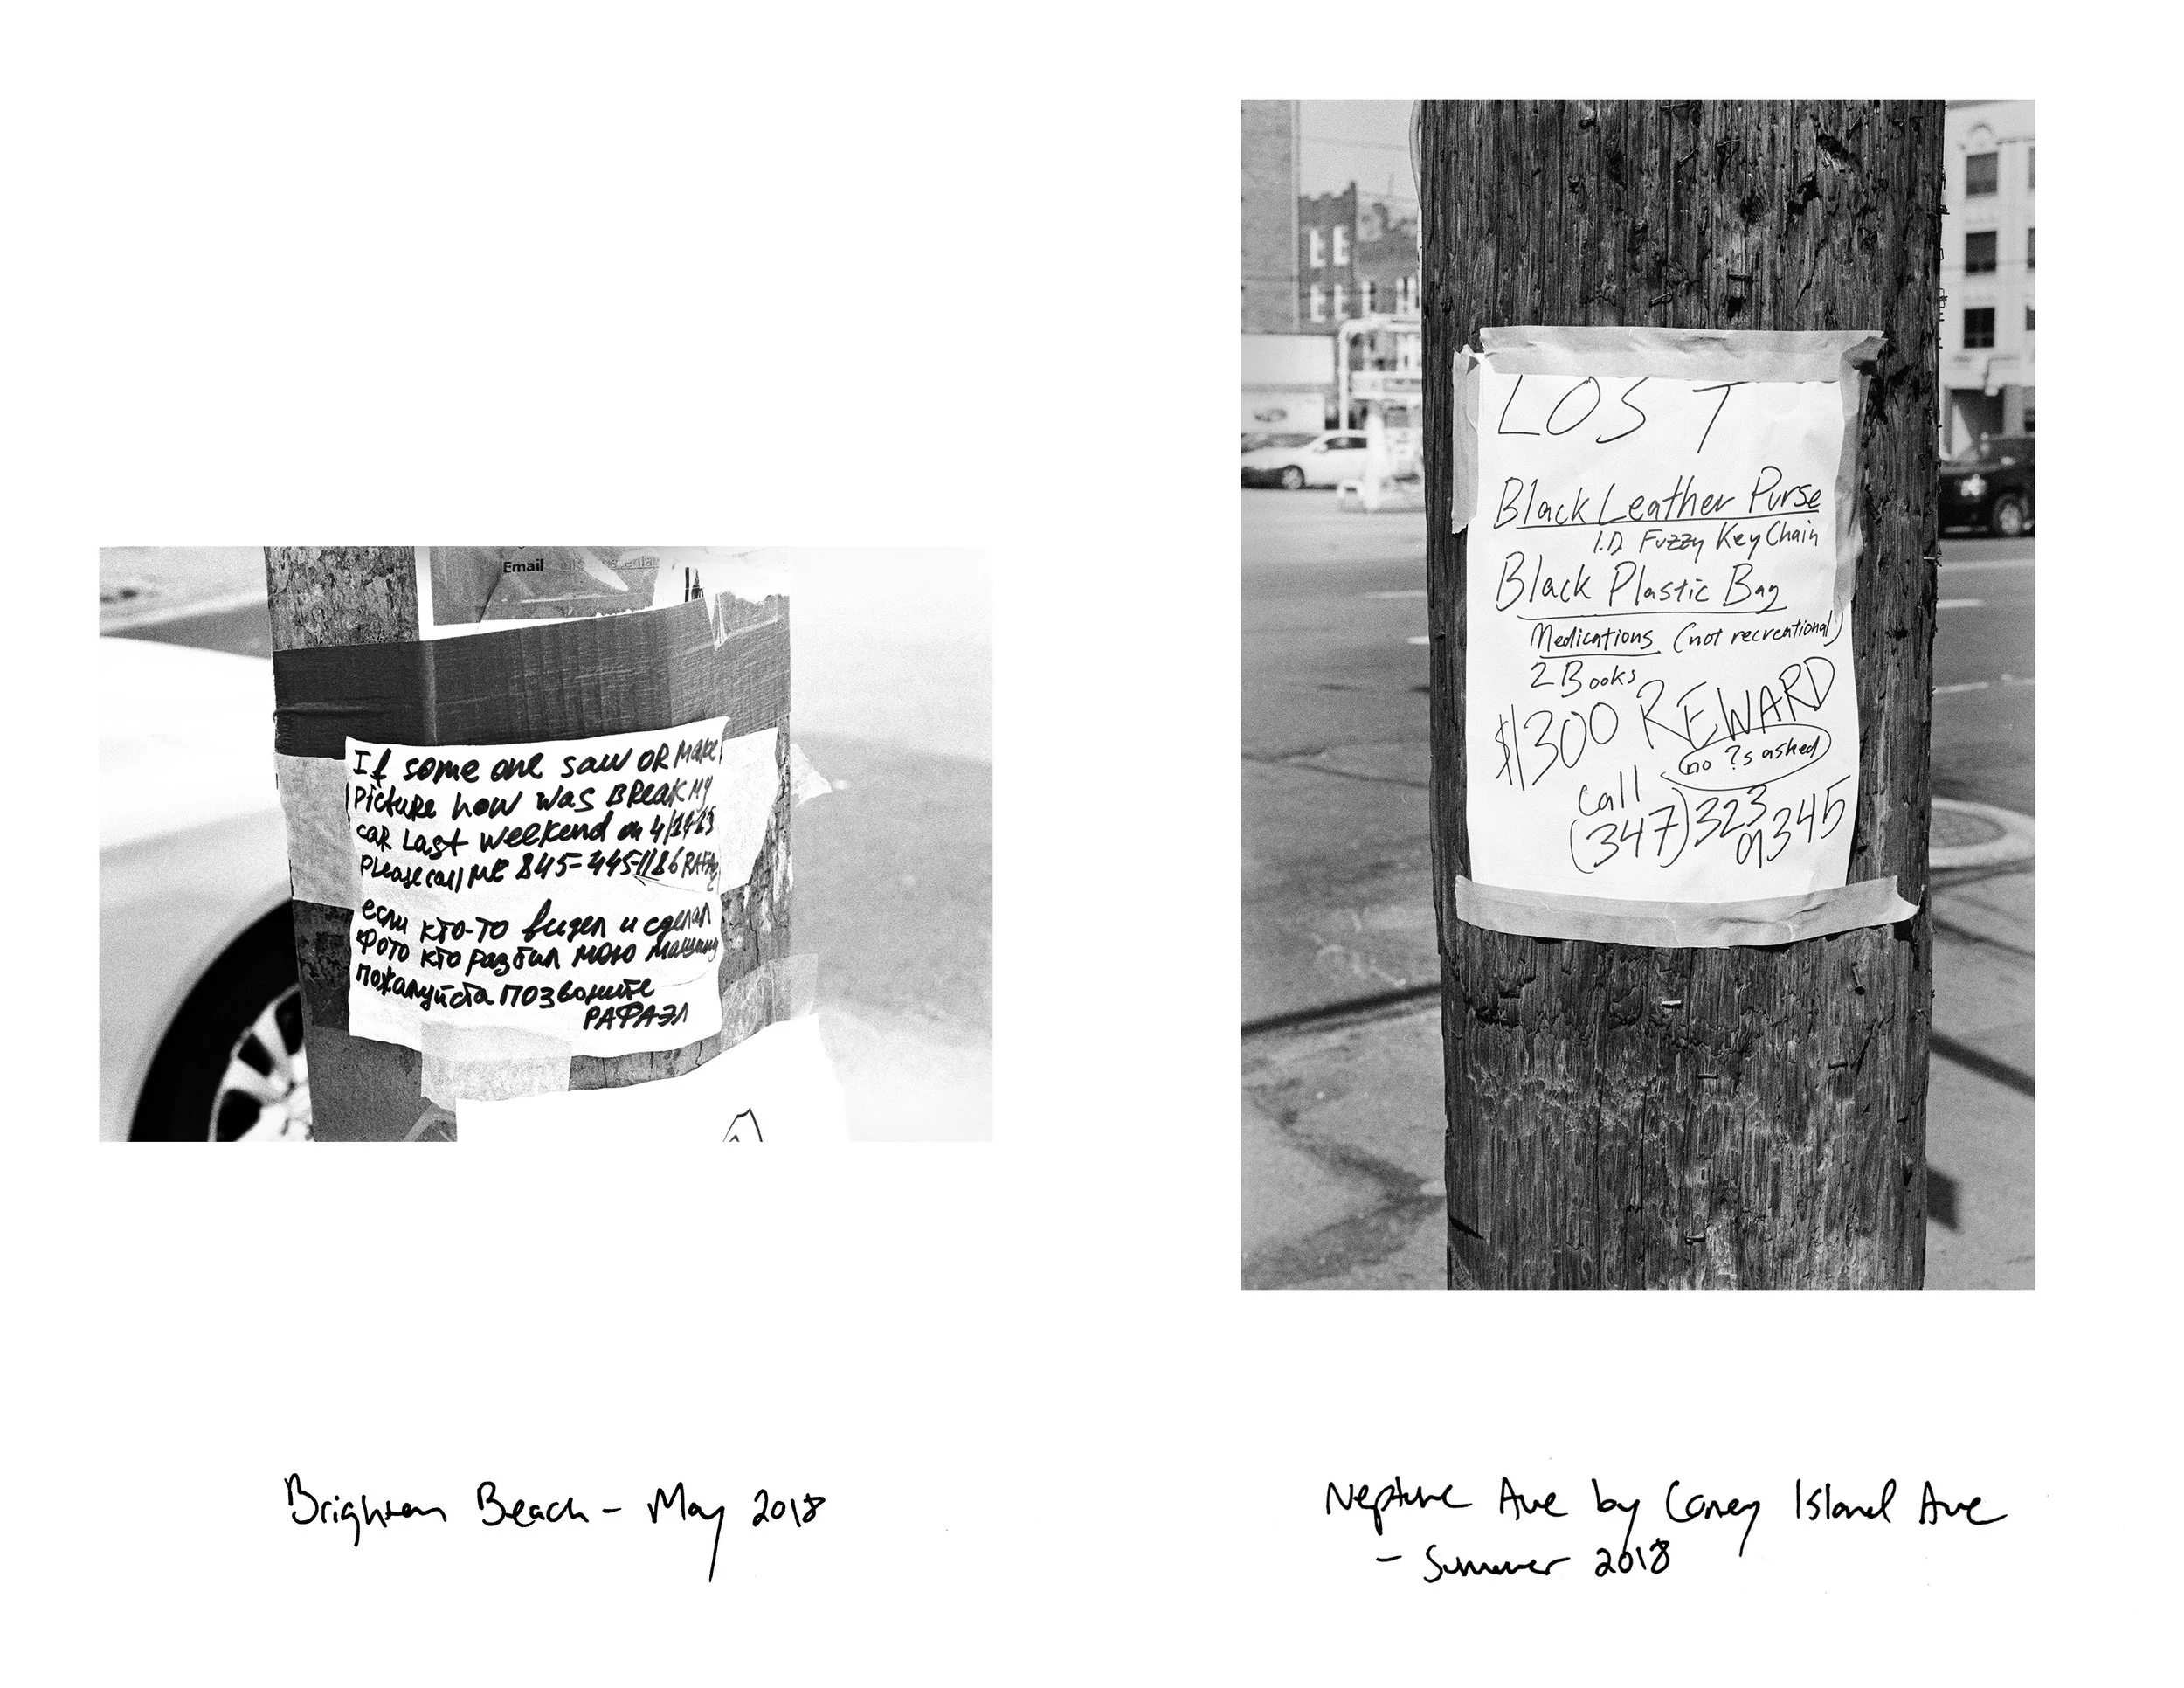 Email
If some one saw OR make
picture how was BReak My
caR Last weekend on
please call Me 845-445-1186
если кто-то видел и сделал
фото кто разбил мою машину
пожалуйста позвоните
РАФАЭЛ
Brighton Beach - May 2018
LOST
Black Leather Purse
I.D. Fuzzy Key Chain
Black Plastic Bag
Medications (not recreational)
2 Books
$1300 REWARD
no ?s asked
call
(347) 323
9345
Neptune Ave by Coney Island Ave
- Summer 2018